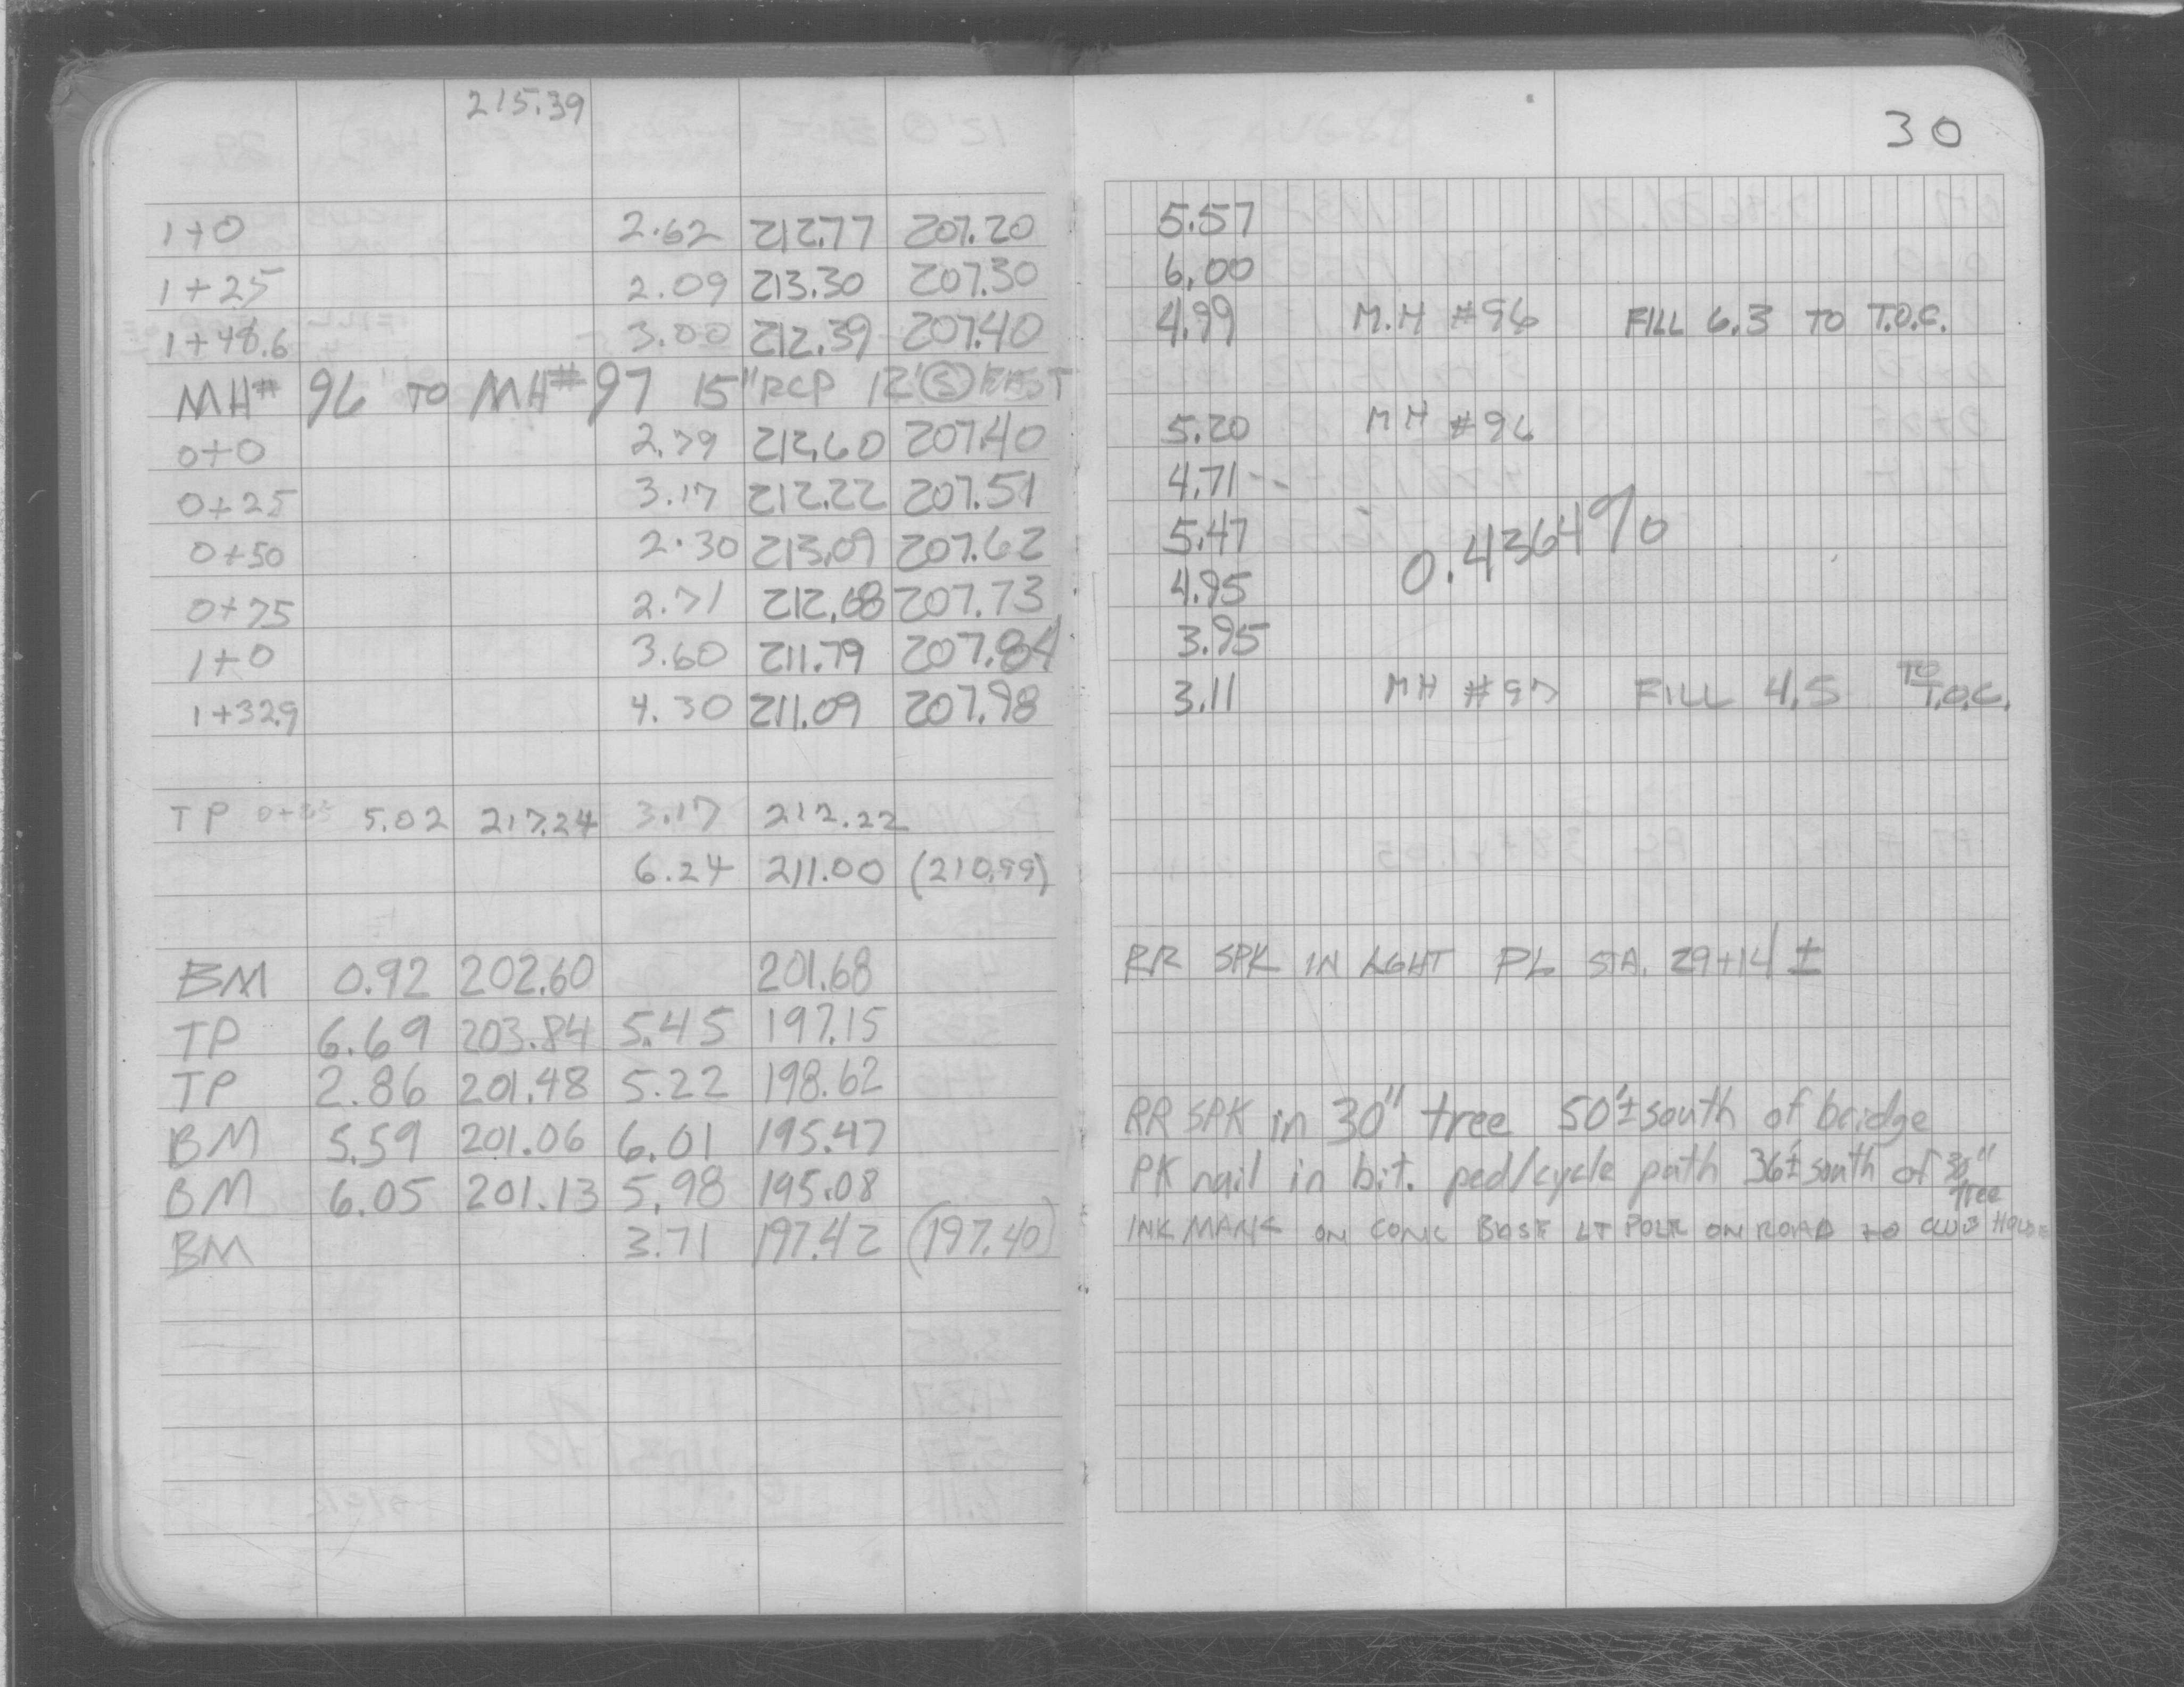 215.39
30
1+0 2.62 212.77 207.20 5.57
1+25 2.09 213.30 207.30 6.00
1+48.6 3.00 212.39 207.40 4.99 M.H #96 FILL 6.3 TO T.O.C.
MH# 96 TO MH# 97 15" RCP 12' O/S EAST
0+0 2.79 212.60 207.40 5.20 MH #96
0+25 3.17 212.22 207.51 4.71
0+50 2.30 213.09 207.62 5.47 0.4364%
0+75 2.71 212.68 207.73 4.95
1+0 3.60 211.79 207.84 3.95
1+32.9 4.30 211.09 207.98 3.11 MH #97 FILL 4.5 TO T.O.C.
TP 0+25 5.02 217.24 3.17 212.22
6.24 211.00 (210.99)
BM 0.92 202.60 201.68 RR SPK IN LGHT PL STA. 29+14 ±
TP 6.69 203.84 5.45 197.15
TP 2.86 201.48 5.22 198.62
BM 5.59 201.06 6.01 195.47 RR SPK in 30" tree 50'± south of bridge
BM 6.05 201.13 5.98 195.08 PK nail in bit. ped/cycle path 36'± south of 30" tree
BM 3.71 197.42 (197.40) INK MARK ON CONC BASE LT POLE ON ROAD TO CLUB HOUSE